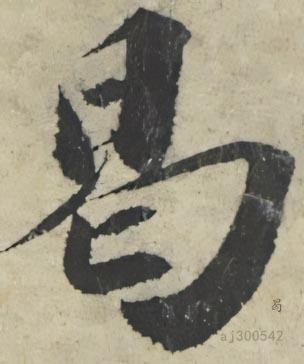 曷
曷
aj300542